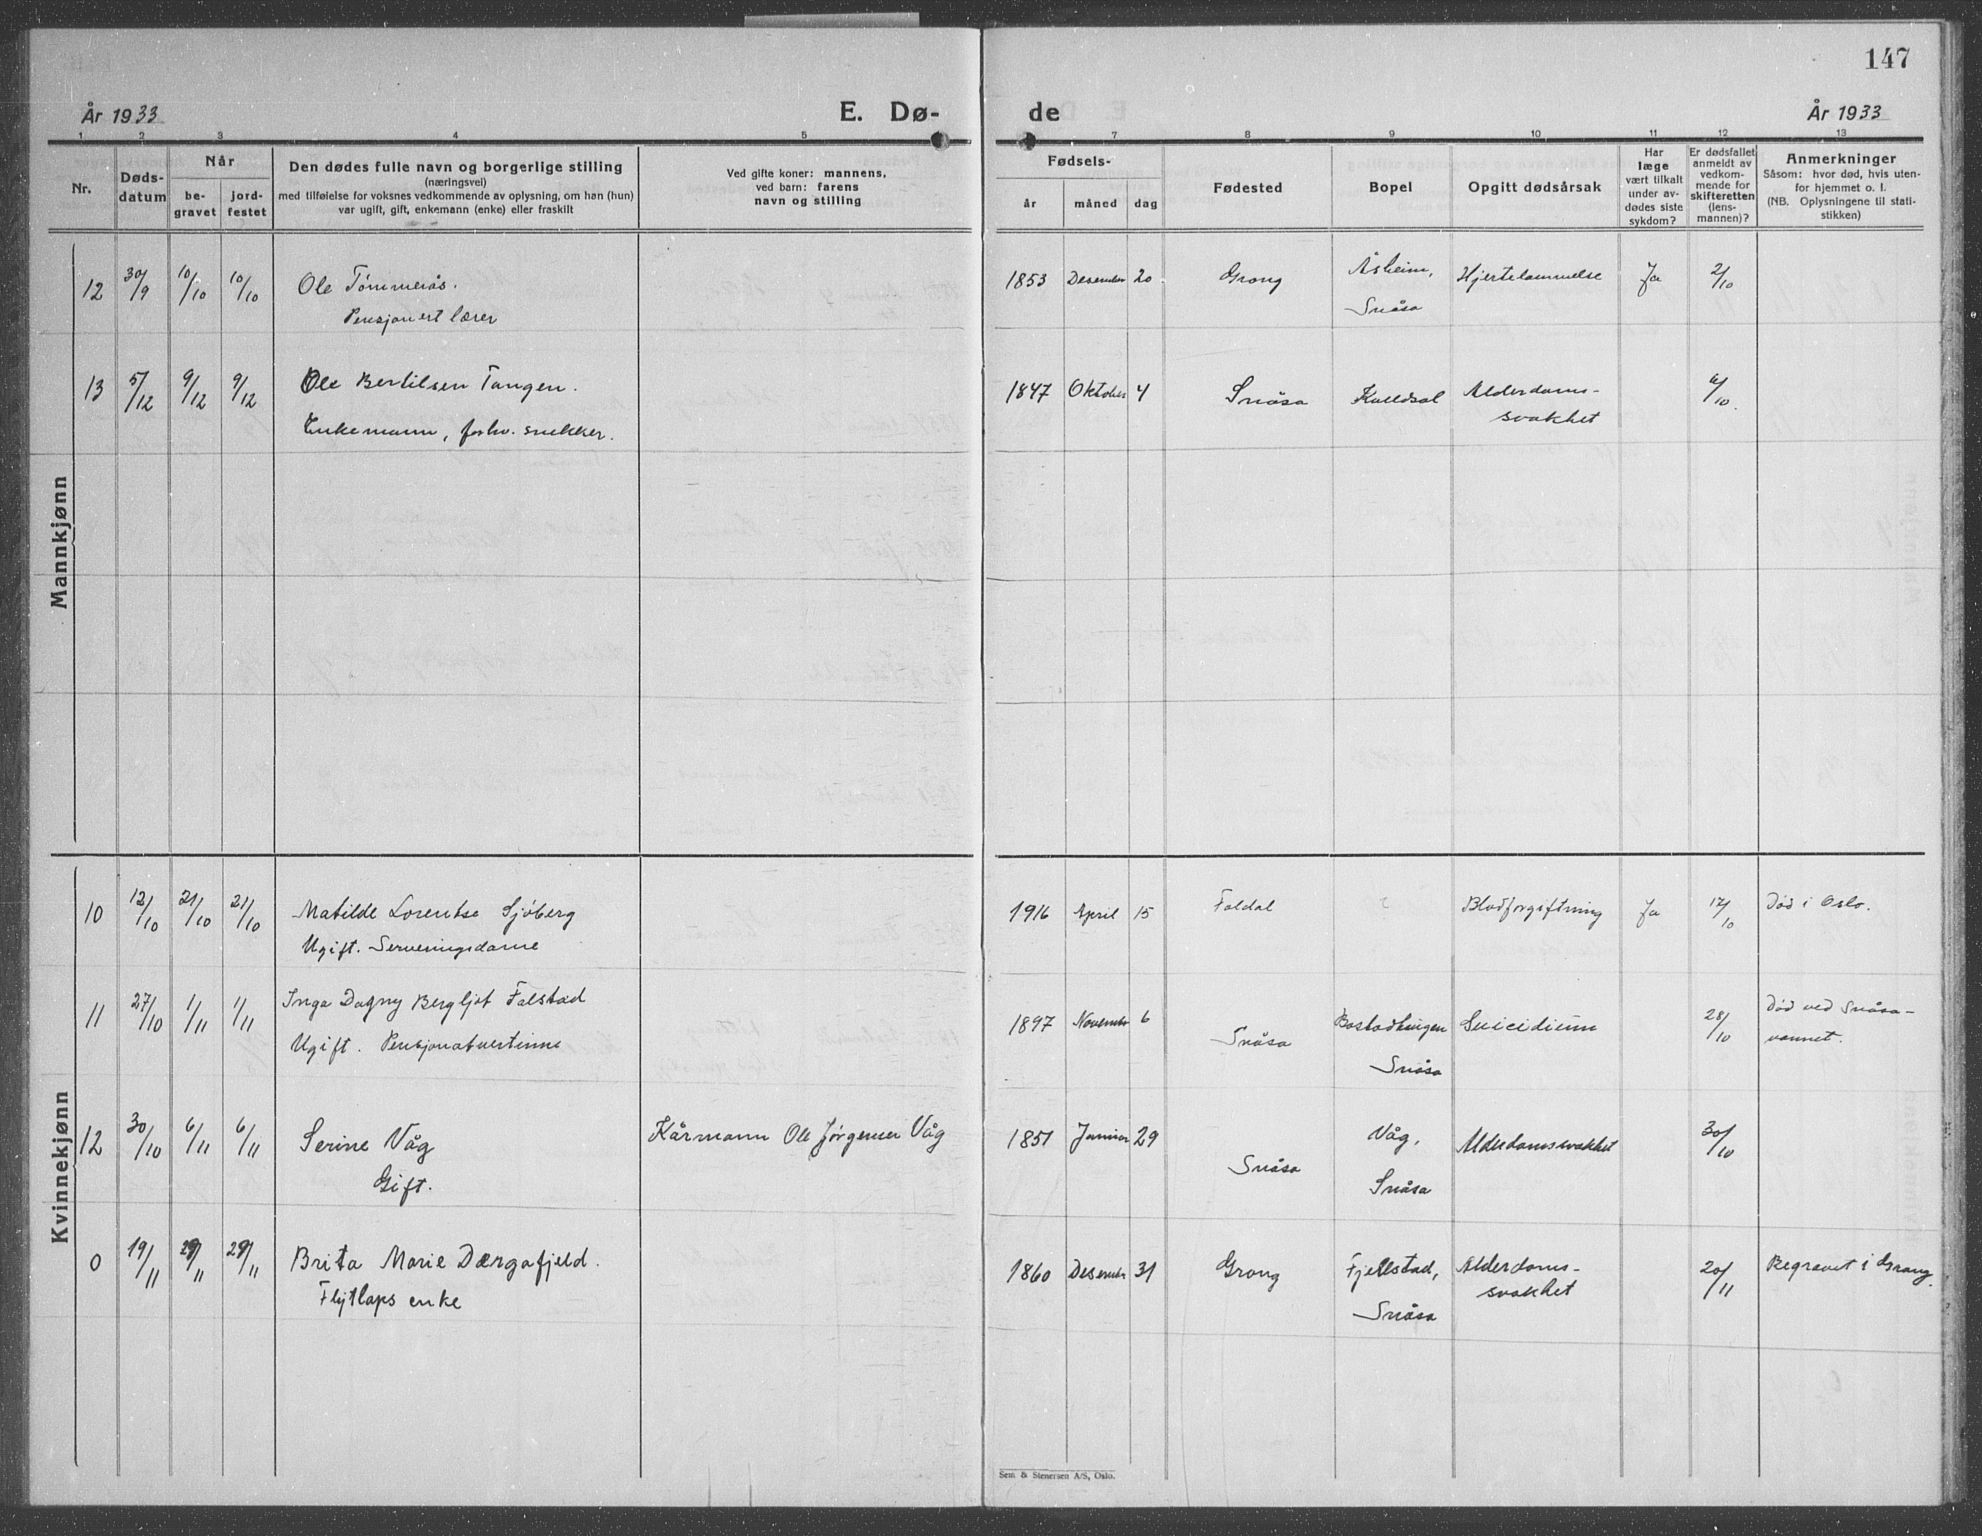 147
År 1933
E. Dø-
de
År 1933
1 2 3 4 5 7 8 9 10 11 12 13
Nr.
Døds-
datum
Når
be-
gravet
jord-
festet
Den dødes fulle navn og borgerlige stilling
(næringsvei)
med tilføielse for voksnes vedkommende av oplysning, om han (hun)
var ugift, gift, enkemann (enke) eller fraskilt
Ved gifte koner: mannens,
ved barn: farens
navn og stilling
Fødsels-
år måned dag
Fødested
Bopel
Opgitt dødsårsak
Har
læge
vært tilkalt
under av-
dødes siste
sykdom?
Er dødsfallet
anmeldt av
vedkom-
mende for
skifteretten
(lens-
mannen)?
Anmerkninger
Såsom: hvor død, hvis uten-
for hjemmet o. l.
(NB. Oplysningene til stati-
stikken)
Mannkjønn
12 30/9 10/10 10/10 Ole Tømmerås. 1853 Desember 20 Grong Åsheim, Hjertelammelse Ja 2/10
Pensjonert lærer Snåsa
13 5/12 9/12 9/12 Ole Bertilsen Tangen. 1847 Oktober 4 Snåsa Alderdoms-
Enkemann, forhv. snekker. svakhet
Kvinnekjønn
10 12/10 21/10 21/10 Matilde Lorentse Sjöberg 1916 April 15 Foldal Blodforgiftning Ja 17/10 Död i Oslo.
Ugift. Serveringsdame
11 27/10 1/11 1/11 Inga Dagny Bergljot Falstad 1897 November 6 Snåsa Suicidium 28/10 Död ved Snåsa-
Ugift. Pensjonatvertinne Snåsa vannet.
12 30/10 6/11 6/11 Serine Våg Kårmann Ole Jørgensen Våg 1851 Januar 29 Snåsa Våg, Alderdomssvakhet 30/10
Gift. Snåsa
0 19/11 29/11 29/11 Brita Marie Dærgafjeld. 1860 Desember 31 Grong Fjellstad, Alderdoms- 20/11 Begravet i Grong.
Flytlaps enke Snåsa svakhet
Sem & Stenersen A/S, Oslo.